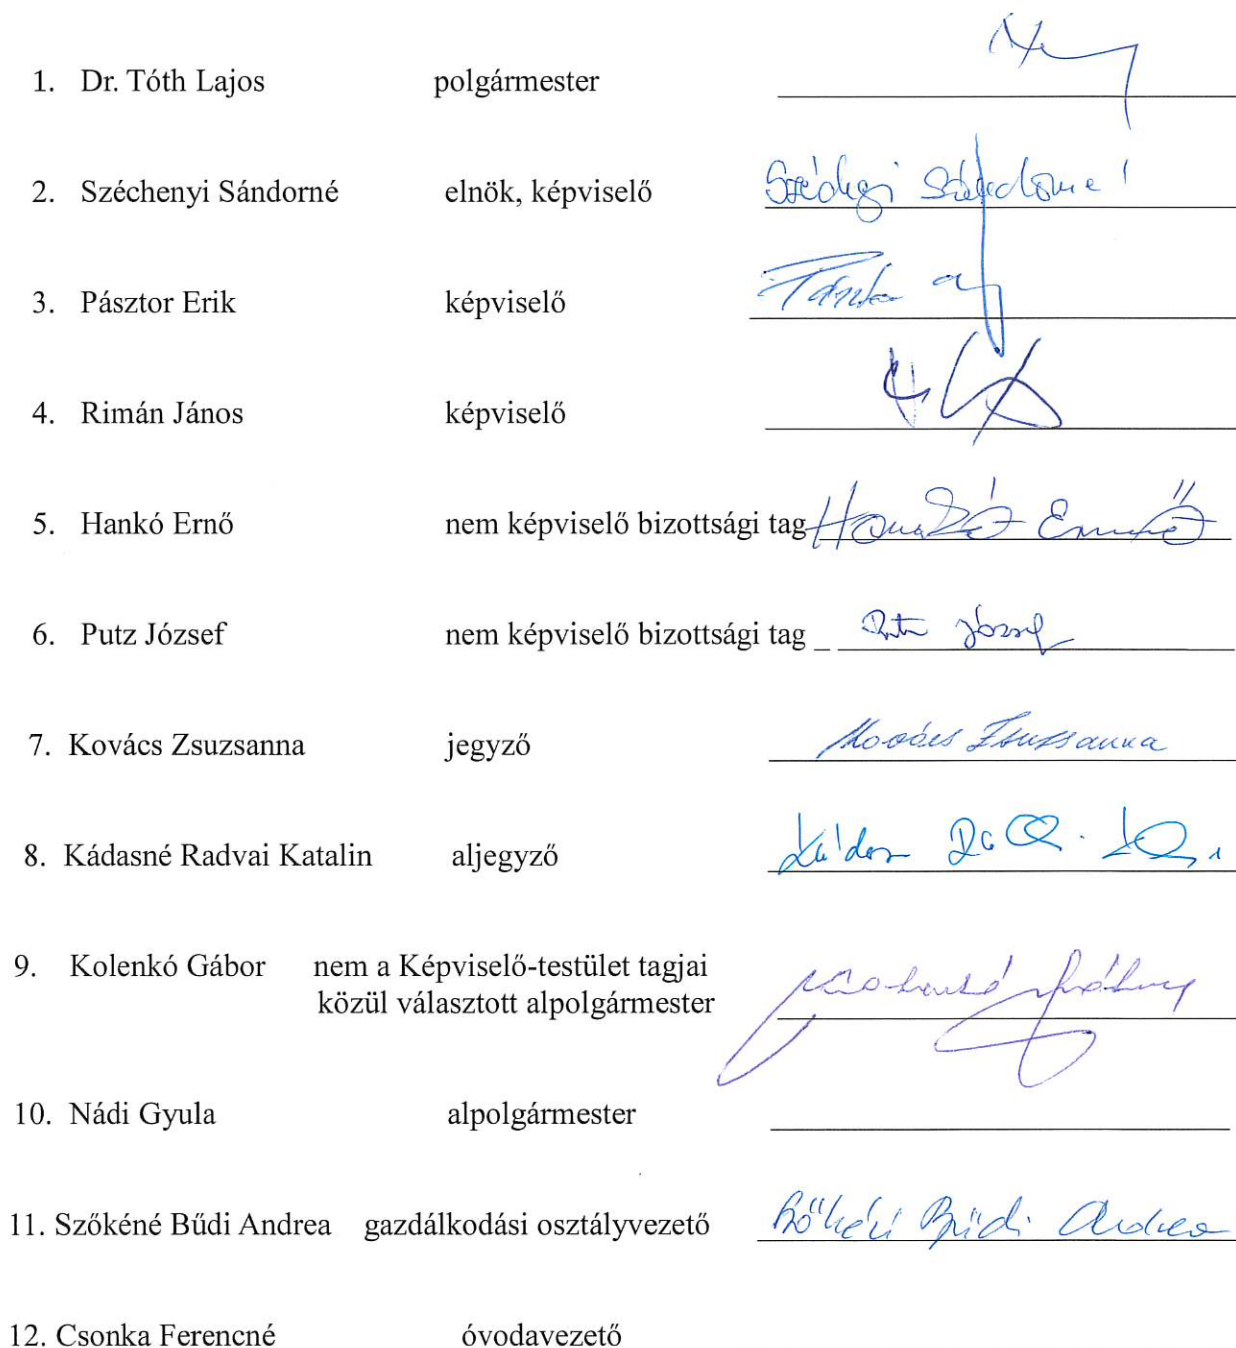 1. Dr. Tóth Lajos polgármester
2. Széchenyi Sándorné elnök, képviselő
3. Pásztor Erik képviselő
4. Rimán János képviselő
5. Hankó Ernő nem képviselő bizottsági tag Hankó Ernő
6. Putz József nem képviselő bizottsági tag _ Putz József
7. Kovács Zsuzsanna jegyző Kovács Zsuzsanna
8. Kádasné Radvai Katalin aljegyző
9. Kolenkó Gábor nem a Képviselő-testület tagjai
közül választott alpolgármester
10. Nádi Gyula alpolgármester
11. Szőkéné Bűdi Andrea gazdálkodási osztályvezető
12. Csonka Ferencné óvodavezető